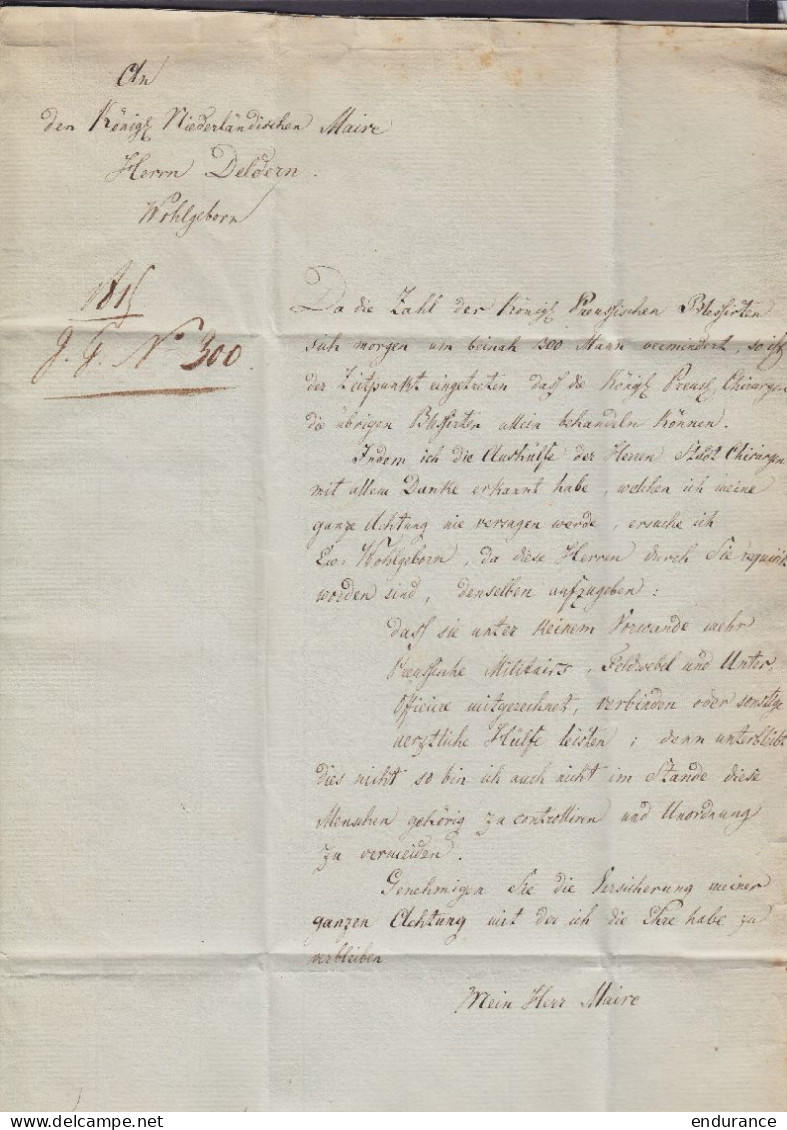 An
den Königl Niederländischen Maire
Herrn Deldern.
Wohlgeborn
1815
J. G. No 300.
Da die Zahl der Königl Preussischen Blessirten
sich morgen um beinah 300 Mann vermindert, so ist
der Zeitpunkt eingetreten dass die Königl Preuss, Chirurgen
die übrigen Blessirten allein behandeln können.
Indem ich die Aushülfe der Herren Stadt Chirurgen
mit allem Danke erkannt habe, welchen ich meine
ganze Achtung nie versagen werde, ersuche ich
Ew. Wohlgeborn, da diese Herren durch Sie requirirt
worden sind, denselben aufzugeben:
dass sie unter keinem Vorwande mehr
Preussische Militairs, Feldwebel und Unter-
Officiere mitgerechnet, verbinden oder sonstige
aerztliche Hülfe leisten; denn unterbleibt
dies nicht so bin ich auch nicht im Stande diese
Menschen gehörig zu controlliren und Unordnung
zu vermeiden.
Genehmigen Sie die Versicherung meiner
ganzen Achtung mit der ich die Ehre habe zu
verbleiben
Mein Herr Maire
endurance